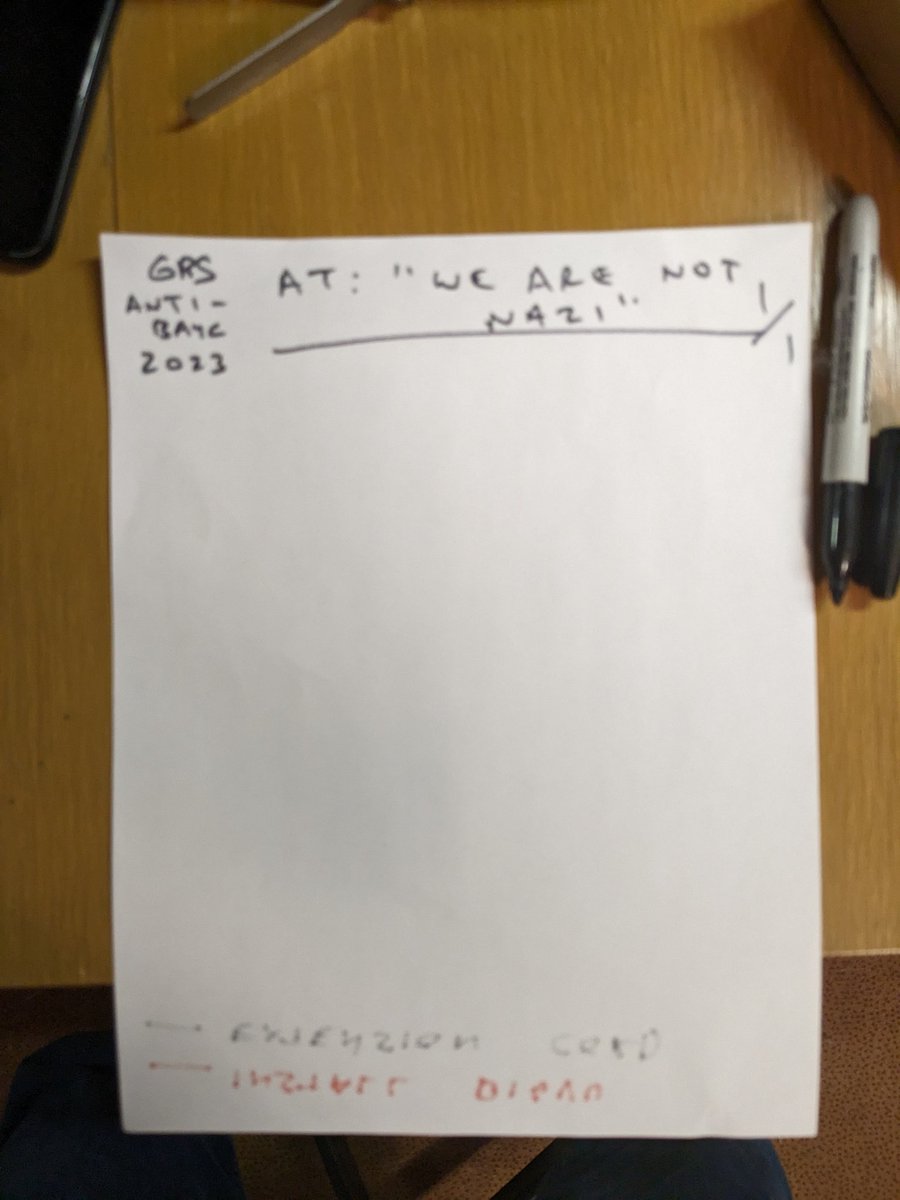 GRS
ANTI-
BAYC
2023
AT: "WE ARE NOT
NAZI"
1/1
EXTENZION CORD